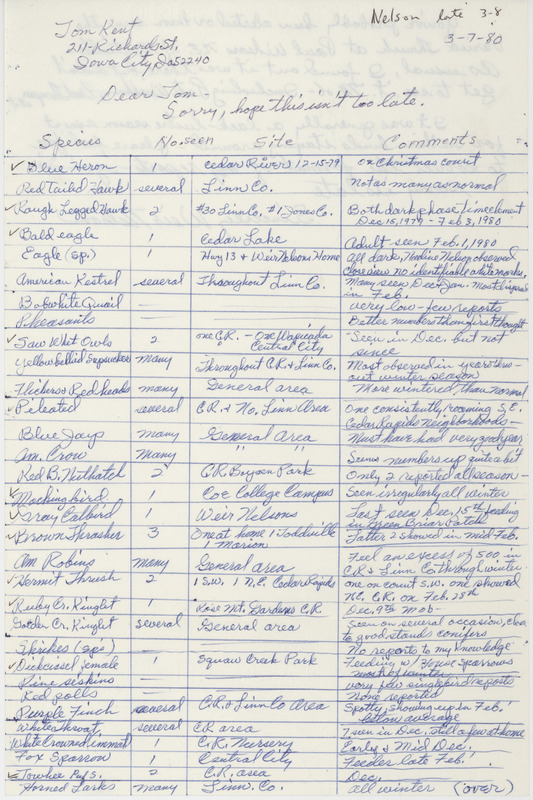 Nelson late 3-8
Tom Kent
211 Richards St.
Iowa City, Ia 52240
3-7-80
Dear Tom-
Sorry, hope this isn't too late.
Species No. seen Site Comments
✓ Blue Heron Cedar River 12-15-79 on Christmas count
Red Tailed Hawk several Linn Co. Not as many as normal
✓ Rough Legged Hawk 2 #30 Linn Co. #1 Jones Co. Both dark phase
Dec 15, 1979 - Feb 3, 1980
✓ Bald eagle 1 Cedar Lake Adult seen Feb. 1, 1980
Eagle (sp.) 1 Hwy 13 + Weir Nelsons Home All dark, Nelson observed
close view no identifiable white marks.
American Kestrel several Throughout Linn Co. Many seen Dec + Jan. Most
in Feb.
Bobwhite Quail — very low - few reports
Pheasants — Better numbers than first thought
✓ Saw Whet Owls 2 one C.R. - One Wapicada Seen in Dec. but not
Central City since
Yellow bellied Sapsucker Many Throughout C.R. + Linn Co. Most observed in years
out winter season
Flickers + Red heads many General area More wintered than normal
✓ Pileated several C.R. + No. Linn Area One consistently roaming S.E.
Cedar Rapids neighborhoods -
Blue Jays Many General Area Must have had very good year
Am. Crow Many " " Seems numbers up quite a bit
Red B. Nuthatch 2 C.R. Bever Park Only 2 reported all season -
✓ Mockingbird 1 Coe College Campus Seen irregularly all winter
✓ Gray Catbird 1 Weir Nelsons Last seen Dec. 15th feeding
in Green Briar Patch
✓ Brown Thrasher 3 One at home 1 Toddville Latter 2 showed in mid Feb.
1 Marion
Am Robins many General area Feel an excess of 500 in
C.R. + Linn Co. through winter
✓ Hermit Thrush 2 1 S.W. 1 N.E. Cedar Rapids one on count S.W. one showed
N.E. C.R. on Feb. 28th
✓ Ruby Cr. Kinglet 1 Rose Mt. Gardens C.R. Dec. 9th
Golden Cr. Kinglet several General area Seen on several occasion, close
to good stands conifers
Shrikes (sp's) — No reports to my knowledge
✓ Dickcissel, female 1 Squaw Creek Park Feeding w/ House Sparrows
most of winter
Pine siskins — very few single bird reports
Red polls — None reported
✓ Purple Finch several C.R. + Linn Co Area Spotty, showing up in Feb.
below average
White throat several CR area 7 seen in Dec. still a few at home
White Crowned immat 1 C.R. Nursery Early + Mid Dec.
Fox Sparrow 1 Central City Feeder late Feb.
✓ Towhee 2 C.R. area Dec.
Horned Larks many Linn. Co. all winter (over)